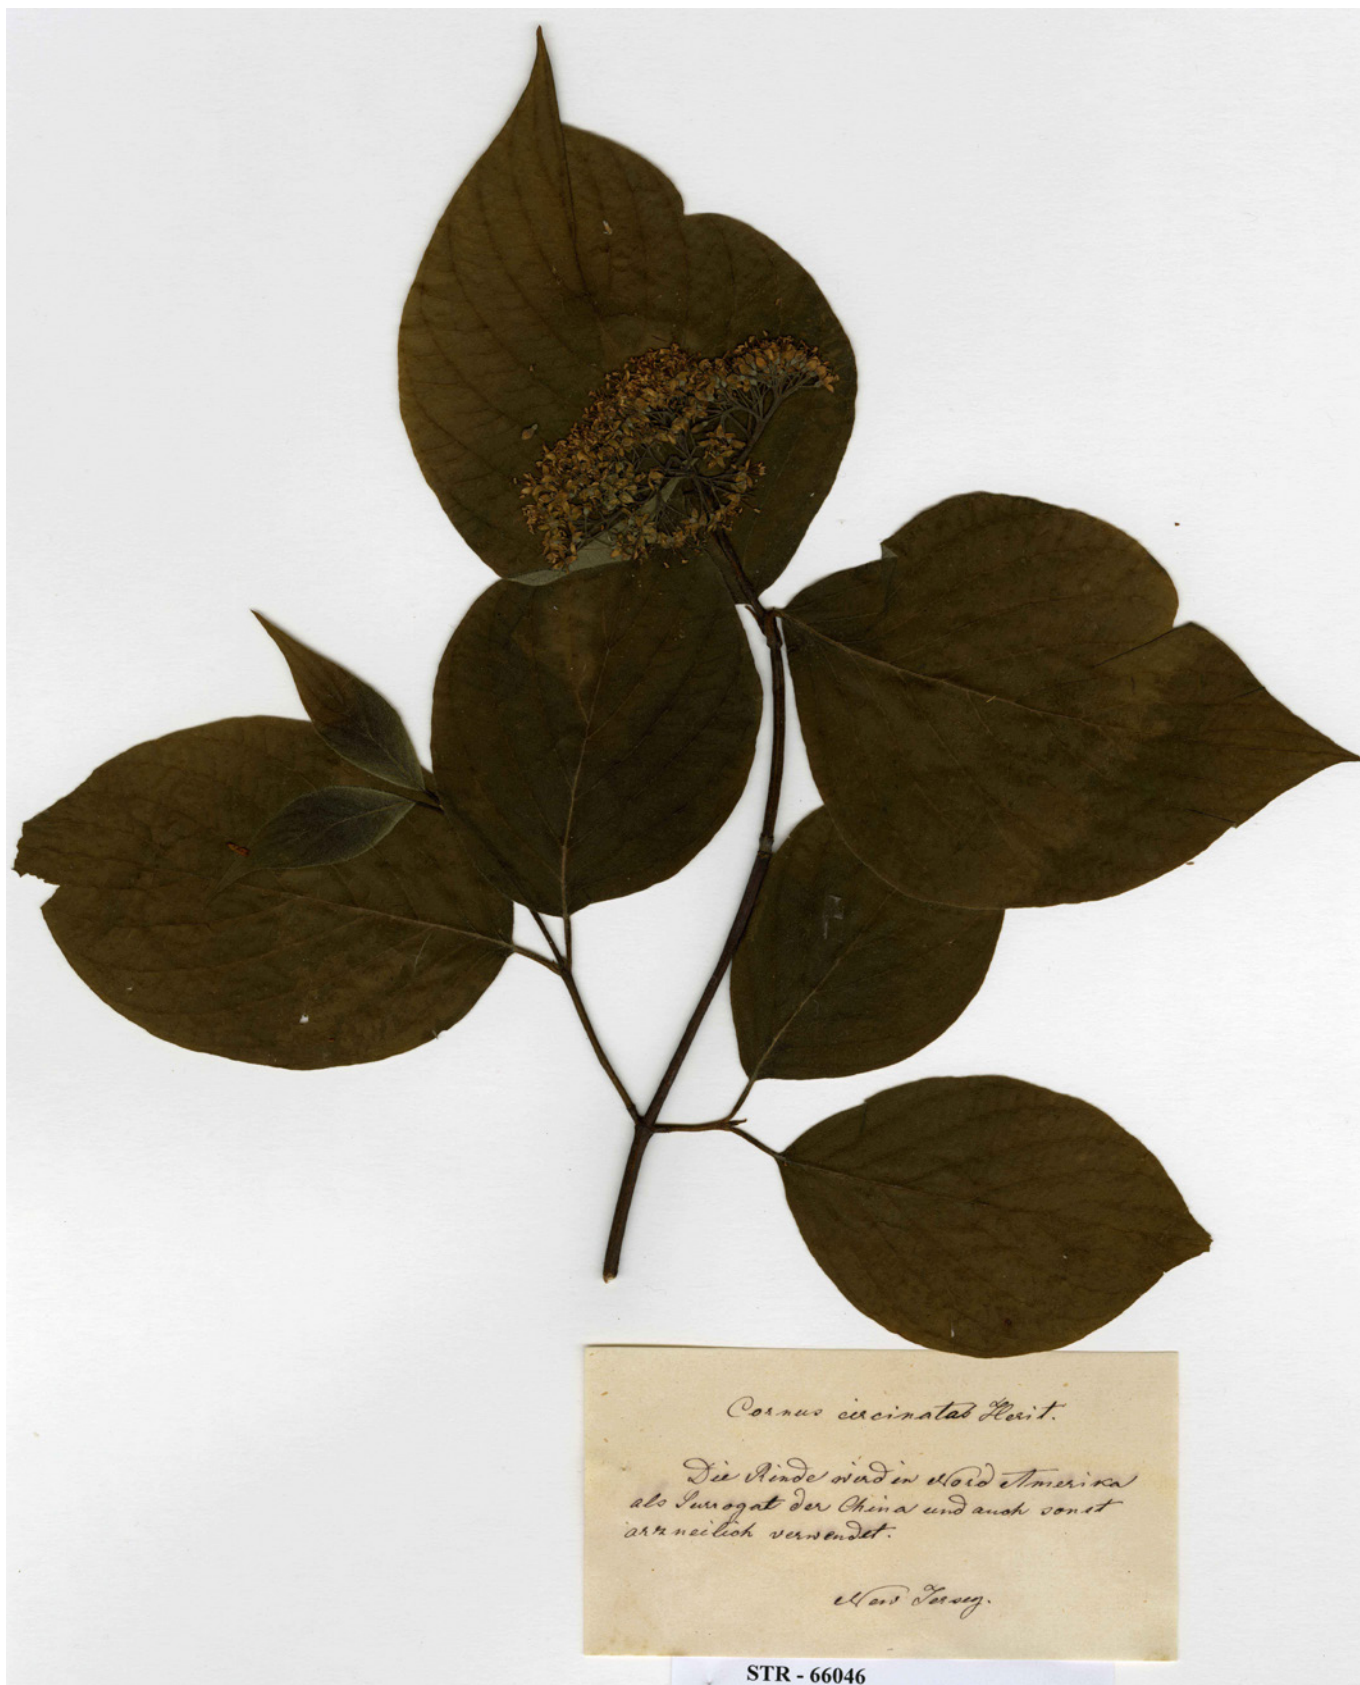 Cornus circinata Herit.
Die Rinde wird in Nord Amerika
als Surrogat der China und auch sonst
arzneilich verwendet.
New Jersey.
STR - 66046